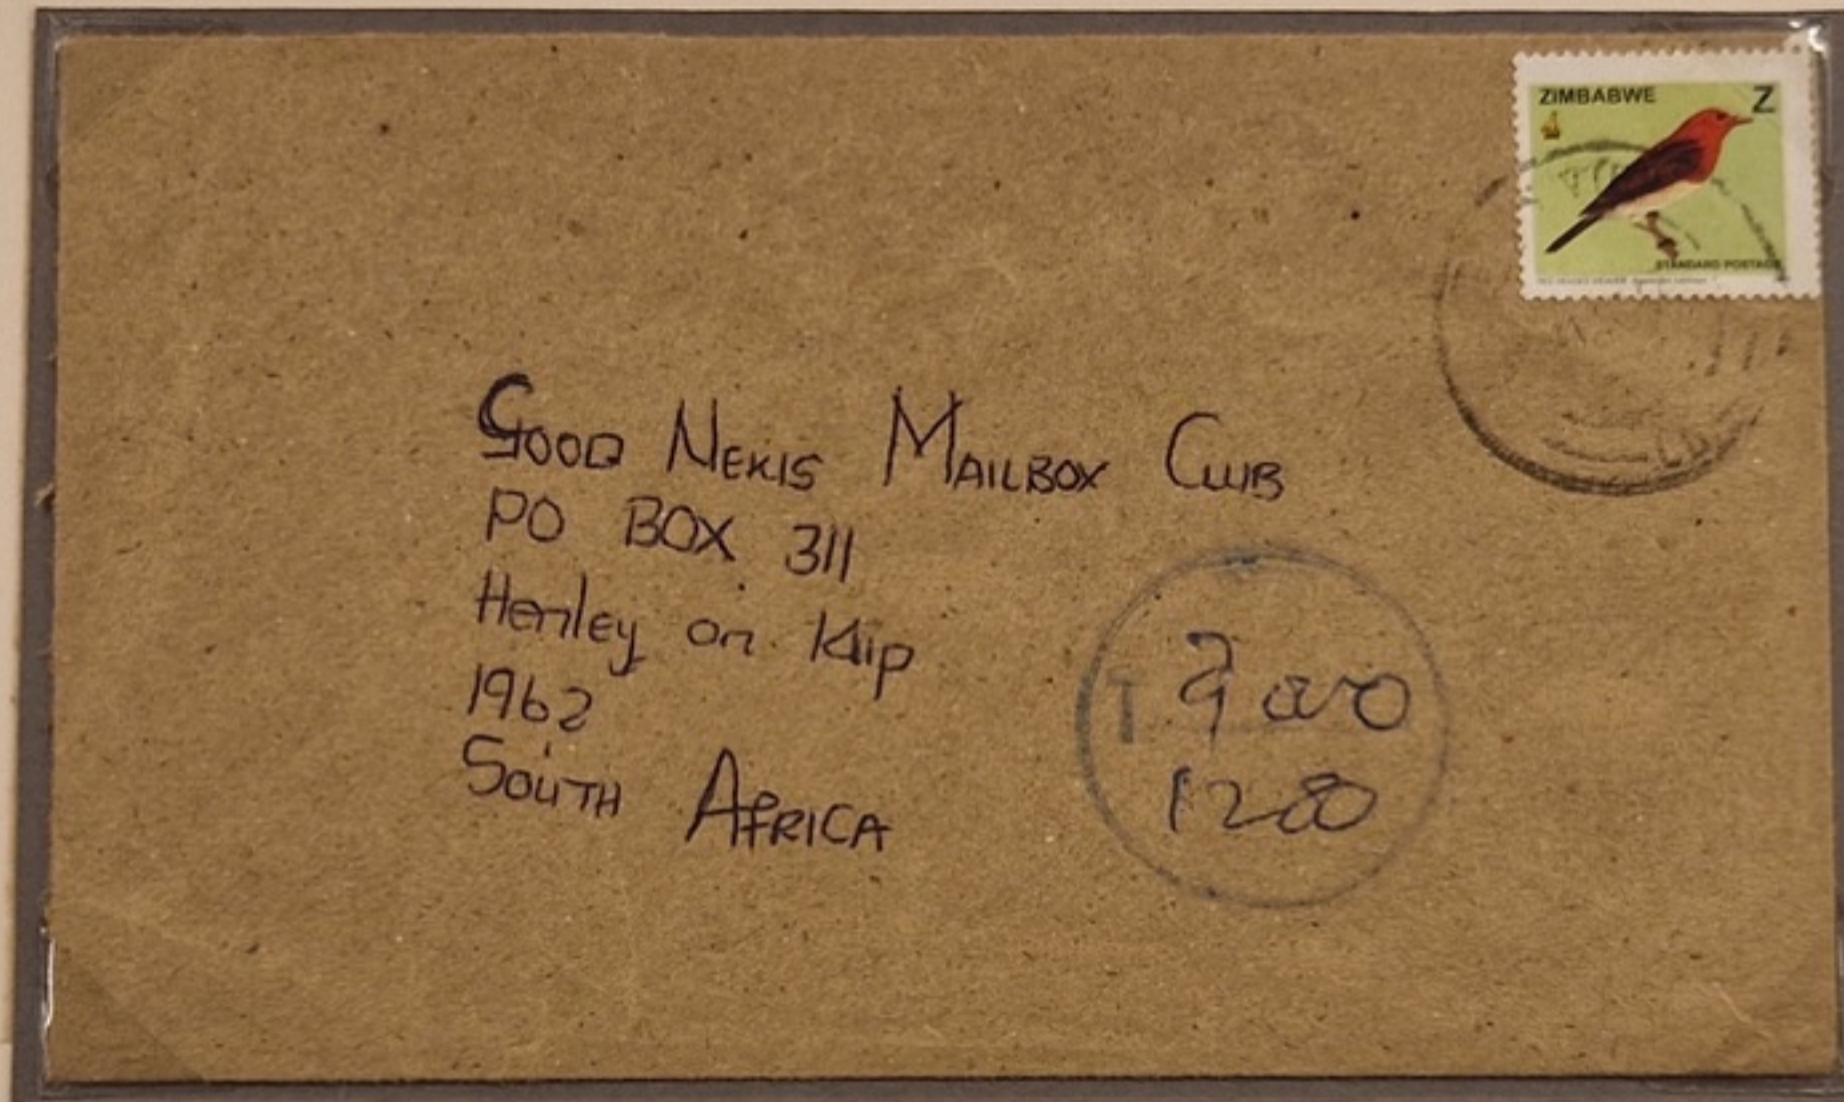 ZIMBABWE Z
STANDARD POSTAGE
GOOD NEWS MAILBOX CLUB
PO BOX 311
Henley on Klip
1962
SOUTH AFRICA
T
1200